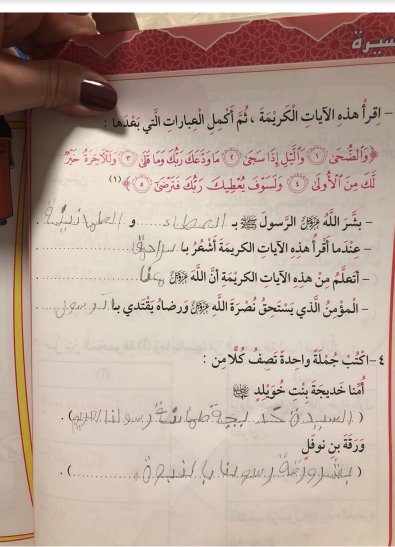 سيرة
- اِقرأْ هذِهِ الآياتِ الْكَرِيْمَةَ ، ثُمَّ أَكْمِلِ الْعِباراتِ الَّتي بَعْدَها :
﴿ وَالضُّحَىٰ ١ وَالَّيْلِ إِذَا سَجَىٰ ٢ مَا وَدَّعَكَ رَبُّكَ وَمَا قَلَىٰ ٣ وَلَلْآخِرَةُ خَيْرٌ
لَّكَ مِنَ الْأُولَىٰ ٤ وَلَسَوْفَ يُعْطِيكَ رَبُّكَ فَتَرْضَىٰ ٥ ﴾ (١)
- بَشَّرَ اللَّهُ عَزَّوَجَلَّ الرَّسولَ ﷺ بـ العطاء و الطمانينة
- عِنْدَما أَقْرَأُ هذِهِ الآياتِ الكريمَةَ أَشْعُرُ با لراحة
- أتعلَّمُ مِنْ هذِهِ الآياتِ الكريمَةِ أنَّ اللَّهَ عَزَّوَجَلَّ معنا
- المؤمنُ الَّذي يَسْتَحِقُّ نُصْرَةَ اللَّهِ عَزَّوَجَلَّ وَرِضاهُ يَقْتَدي با لرسول
٤- اكْتُبْ جُمْلَةً واحِدَةً تَصِفُ كُلًّا مِن :
أُمِّنا خَديجَةَ بِنْتِ خُوَيْلِدٍ ﷺ
( السيدة خديجة طمانت رسولنا )
وَرَقَةَ بنِ نوفَلٍ
( بشر ورقة رسولنا بالنبوة )